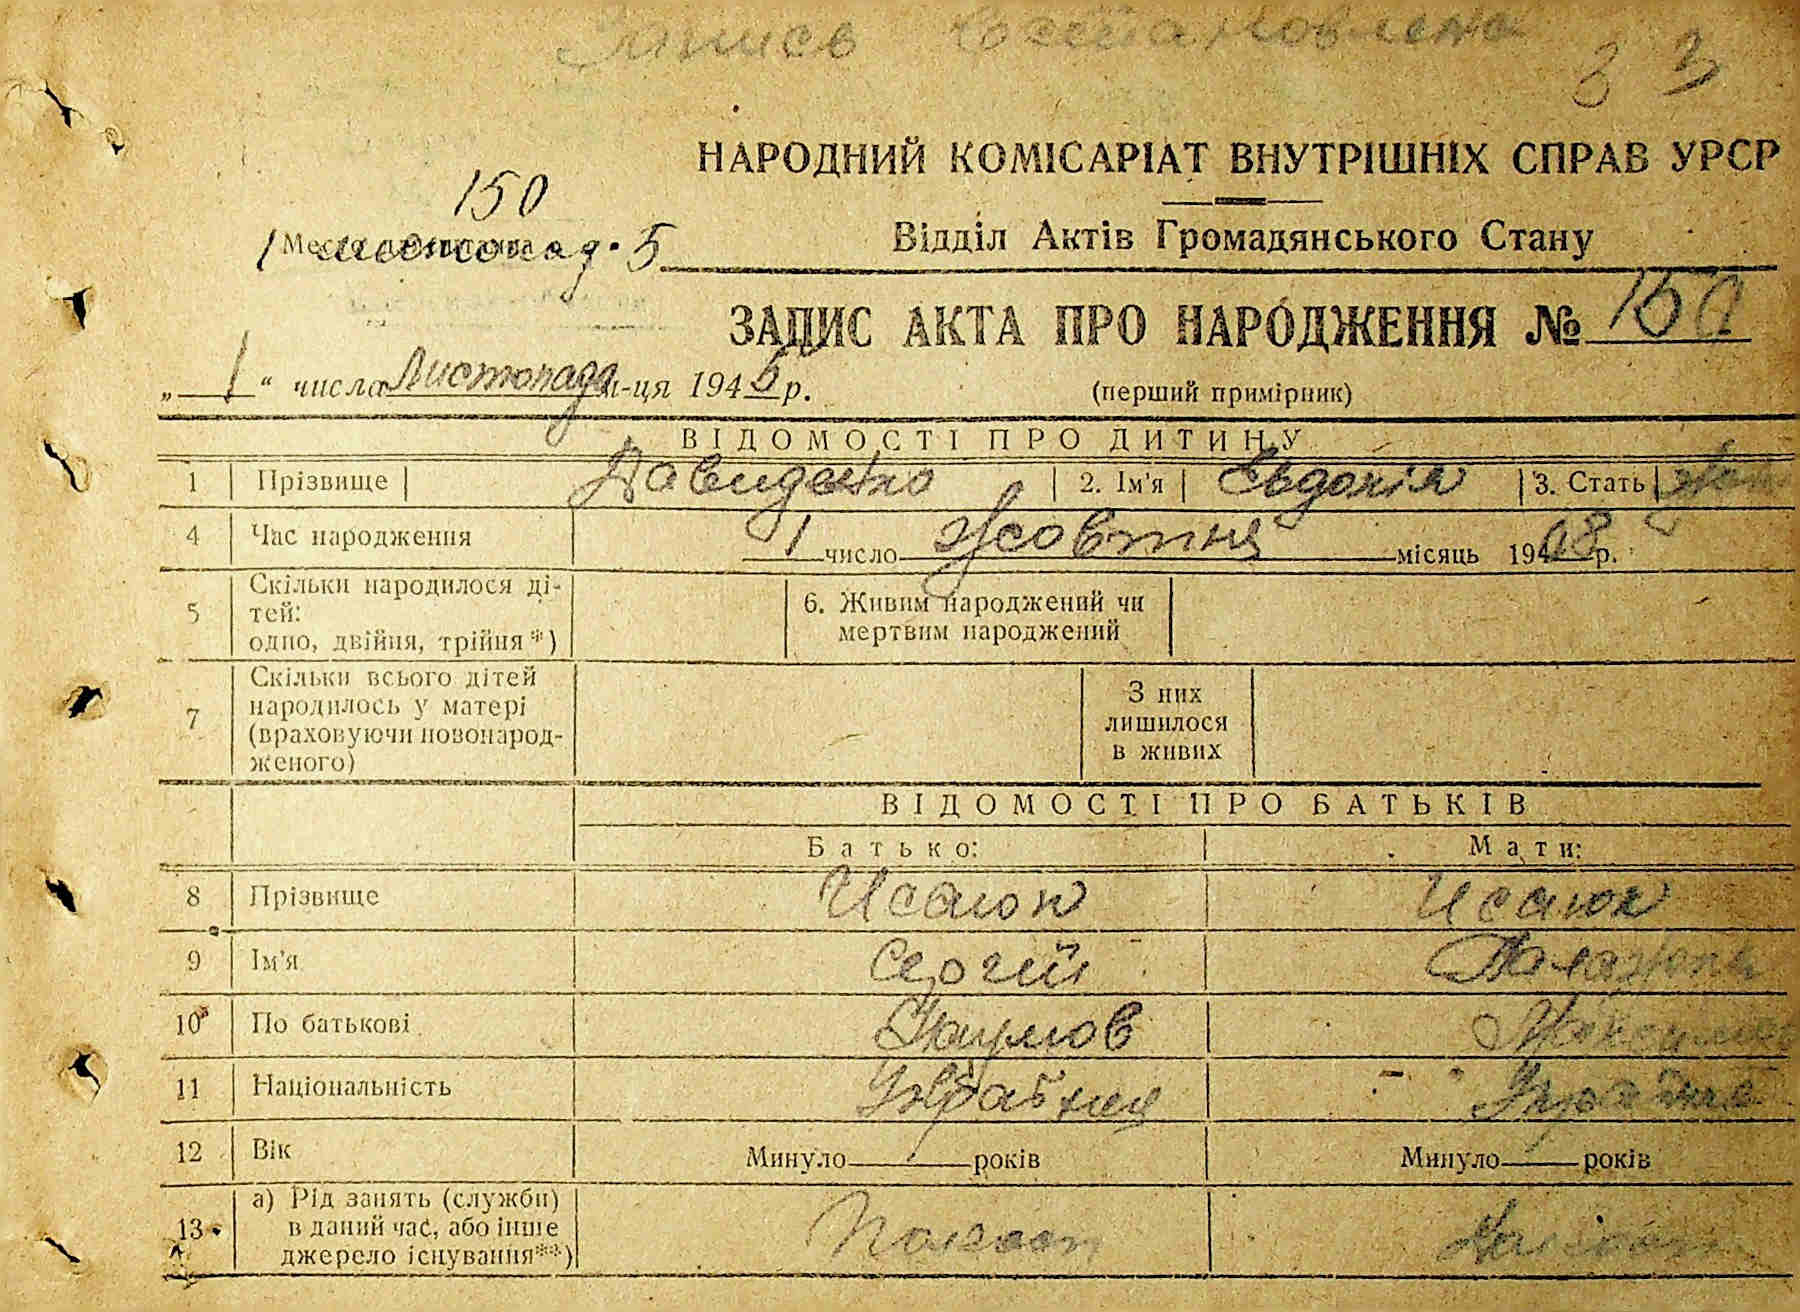 Запись востановлена
33
НАРОДНИЙ КОМІСАРІАТ ВНУТРІШНІХ СПРАВ УРСР
150
1 листопад. 5
Відділ Актів Громадянського Стану
ЗАПИС АКТА ПРО НАРОДЖЕННЯ № 150
„ 1 “ числа Листопада м-ця 1945 р.
(перший примірник)
ВІДОМОСТІ ПРО ДИТИНУ
1 Прізвище Давиденко 2. Ім'я Євдокія 3. Стать
4 Час народження 1 число Жовтня місяць 1908 р.
5 Скільки народилося ді-
тей:
одно, двійня, трійня *)
6. Живим народжений чи
мертвим народжений
7 Скільки всього дітей
народилось у матері
(враховуючи новонарод-
женого)
З них
лишилося
в живих
ВІДОМОСТІ ПРО БАТЬКІВ
Батько: Мати:
8 Прізвище Исаюк Исаюк
9 Ім'я Сергій
10 По батькові Наумов
11 Національність
12 Вік Минуло років Минуло років
13 а) Рід занять (служби)
в даний час, або інше
джерело існування**)